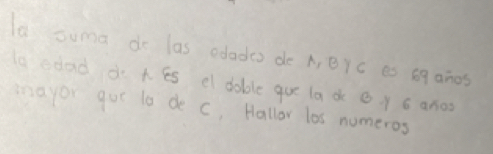 la suma de las edades de A, B y C es 69 años
la edad de A Es el doble que la de B y 6 años
mayor que la de C, Hallar los numeros